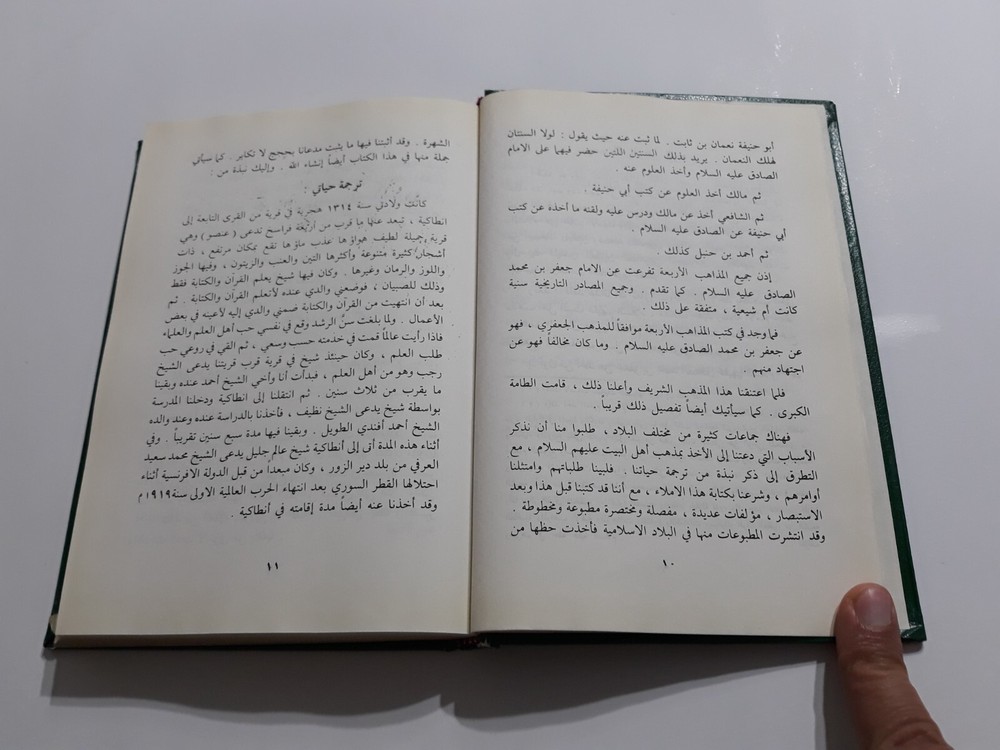 أبو حنيفة نعمان بن ثابت . لما ثبت عنه حيث يقول : لولا السنتان
لهلك النعمان . يريد بذلك السنتين اللتين حضر فيهما على الامام
الصادق عليه السلام وأخذ العلوم عنه .
ثم مالك أخذ العلوم عن كتب أبي حنيفة .
ثم الشافعي أخذ عن مالك ودرس عليه ولقنه ما أخذه عن كتب
أبي حنيفة عن الصادق عليه السلام .
ثم أحمد بن حنبل كذلك .
إذن جميع المذاهب الأربعة تفرعت عن الامام جعفر بن محمد
الصادق عليه السلام . كما تقدم . وجميع المصادر التاريخية سنية
كانت أم شيعية ، متفقة على ذلك .
فما وجد في كتب المذاهب الأربعة موافقاً للمذهب الجعفري ، فهو
عن جعفر بن محمد الصادق عليه السلام . وما كان مخالفاً فهو عن
اجتهاد منهم .
فلما اعتنقنا هذا المذهب الشريف وأعلنا ذلك ، قامت الطامة
الكبرى . كما سيأتيك أيضاً تفصيل ذلك قريباً .
فهناك جماعات كثيرة من مختلف البلاد ، طلبوا منا أن نذكر
الأسباب التي دعتنا إلى الأخذ بمذهب أهل البيت عليهم السلام ، مع
التطرق إلى ذكر نبذة من ترجمة حياتنا . فلبينا طلباتهم وامتثلنا
أوامرهم ، وشرعنا بكتابة هذا الاملاء ، مع أننا قد كتبنا قبل هذا وبعد
الاستبصار ، مؤلفات عديدة ، مفصلة ومختصرة مطبوعة ومخطوطة .
وقد انتشرت المطبوعات منها في البلاد الاسلامية فأخذت حظها من
١٠
الشهرة . وقد أثبتنا فيها ما يثبت مدعانا بحجج لا تكابر . كما سيأتي
جملة منها في هذا الكتاب أيضاً إنشاء الله . وإليك نبذة من :
ترجمة حياتي :
كانت ولادتي سنة ١٣١٤ هجرية في قرية من القرى التابعة إلى
انطاكية ، تبعد عنها ما قرب من أربعة فراسخ تدعى ( عنصو ) وهي
قرية جميلة لطيف هواؤها عذب ماؤها تقع بمكان مرتفع ، ذات
أشجار كثيرة متنوعة وأكثرها التين والعنب والزيتون ، وفيها الجوز
واللوز والرمان وغيرها . وكان فيها شيخ يعلم القرآن والكتابة فقط
وذلك للصبيان ، فوضعني والدي عنده لأتعلم القرآن والكتابة . ثم
بعد أن انتهيت من القرآن والكتابة ضمني والدي إليه لأعينه في بعض
الأعمال . ولما بلغت سنّ الرشد وقع في نفسي حب أهل العلم والعلماء
فاذا رأيت عالماً قمت في خدمته حسب وسعي ، ثم القي في روعي حب
طلب العلم ، وكان حينئذ شيخ في قرية قرب قريتنا يدعى الشيخ
رجب وهو من أهل العلم ، فبدأت أنا وأخي الشيخ أحمد عنده وبقينا
ما يقرب من ثلاث سنين . ثم انتقلنا إلى انطاكية ودخلنا المدرسة
بواسطة شيخ يدعى الشيخ نظيف ، فأخذنا بالدراسة عنده وعند والده
الشيخ أحمد أفندي الطويل . وبقينا فيها مدة سبع سنين تقريباً . وفي
أثناء هذه المدة أتى إلى أنطاكية شيخ عالم جليل يدعى الشيخ محمد سعيد
العرفي من بلد دير الزور ، وكان مبعداً من قبل الدولة الافرنسية أثناء
احتلالها القطر السوري بعد انتهاء الحرب العالمية الاولى سنة ١٩١٩ م
وقد أخذنا عنه أيضاً مدة إقامته في أنطاكية .
١١